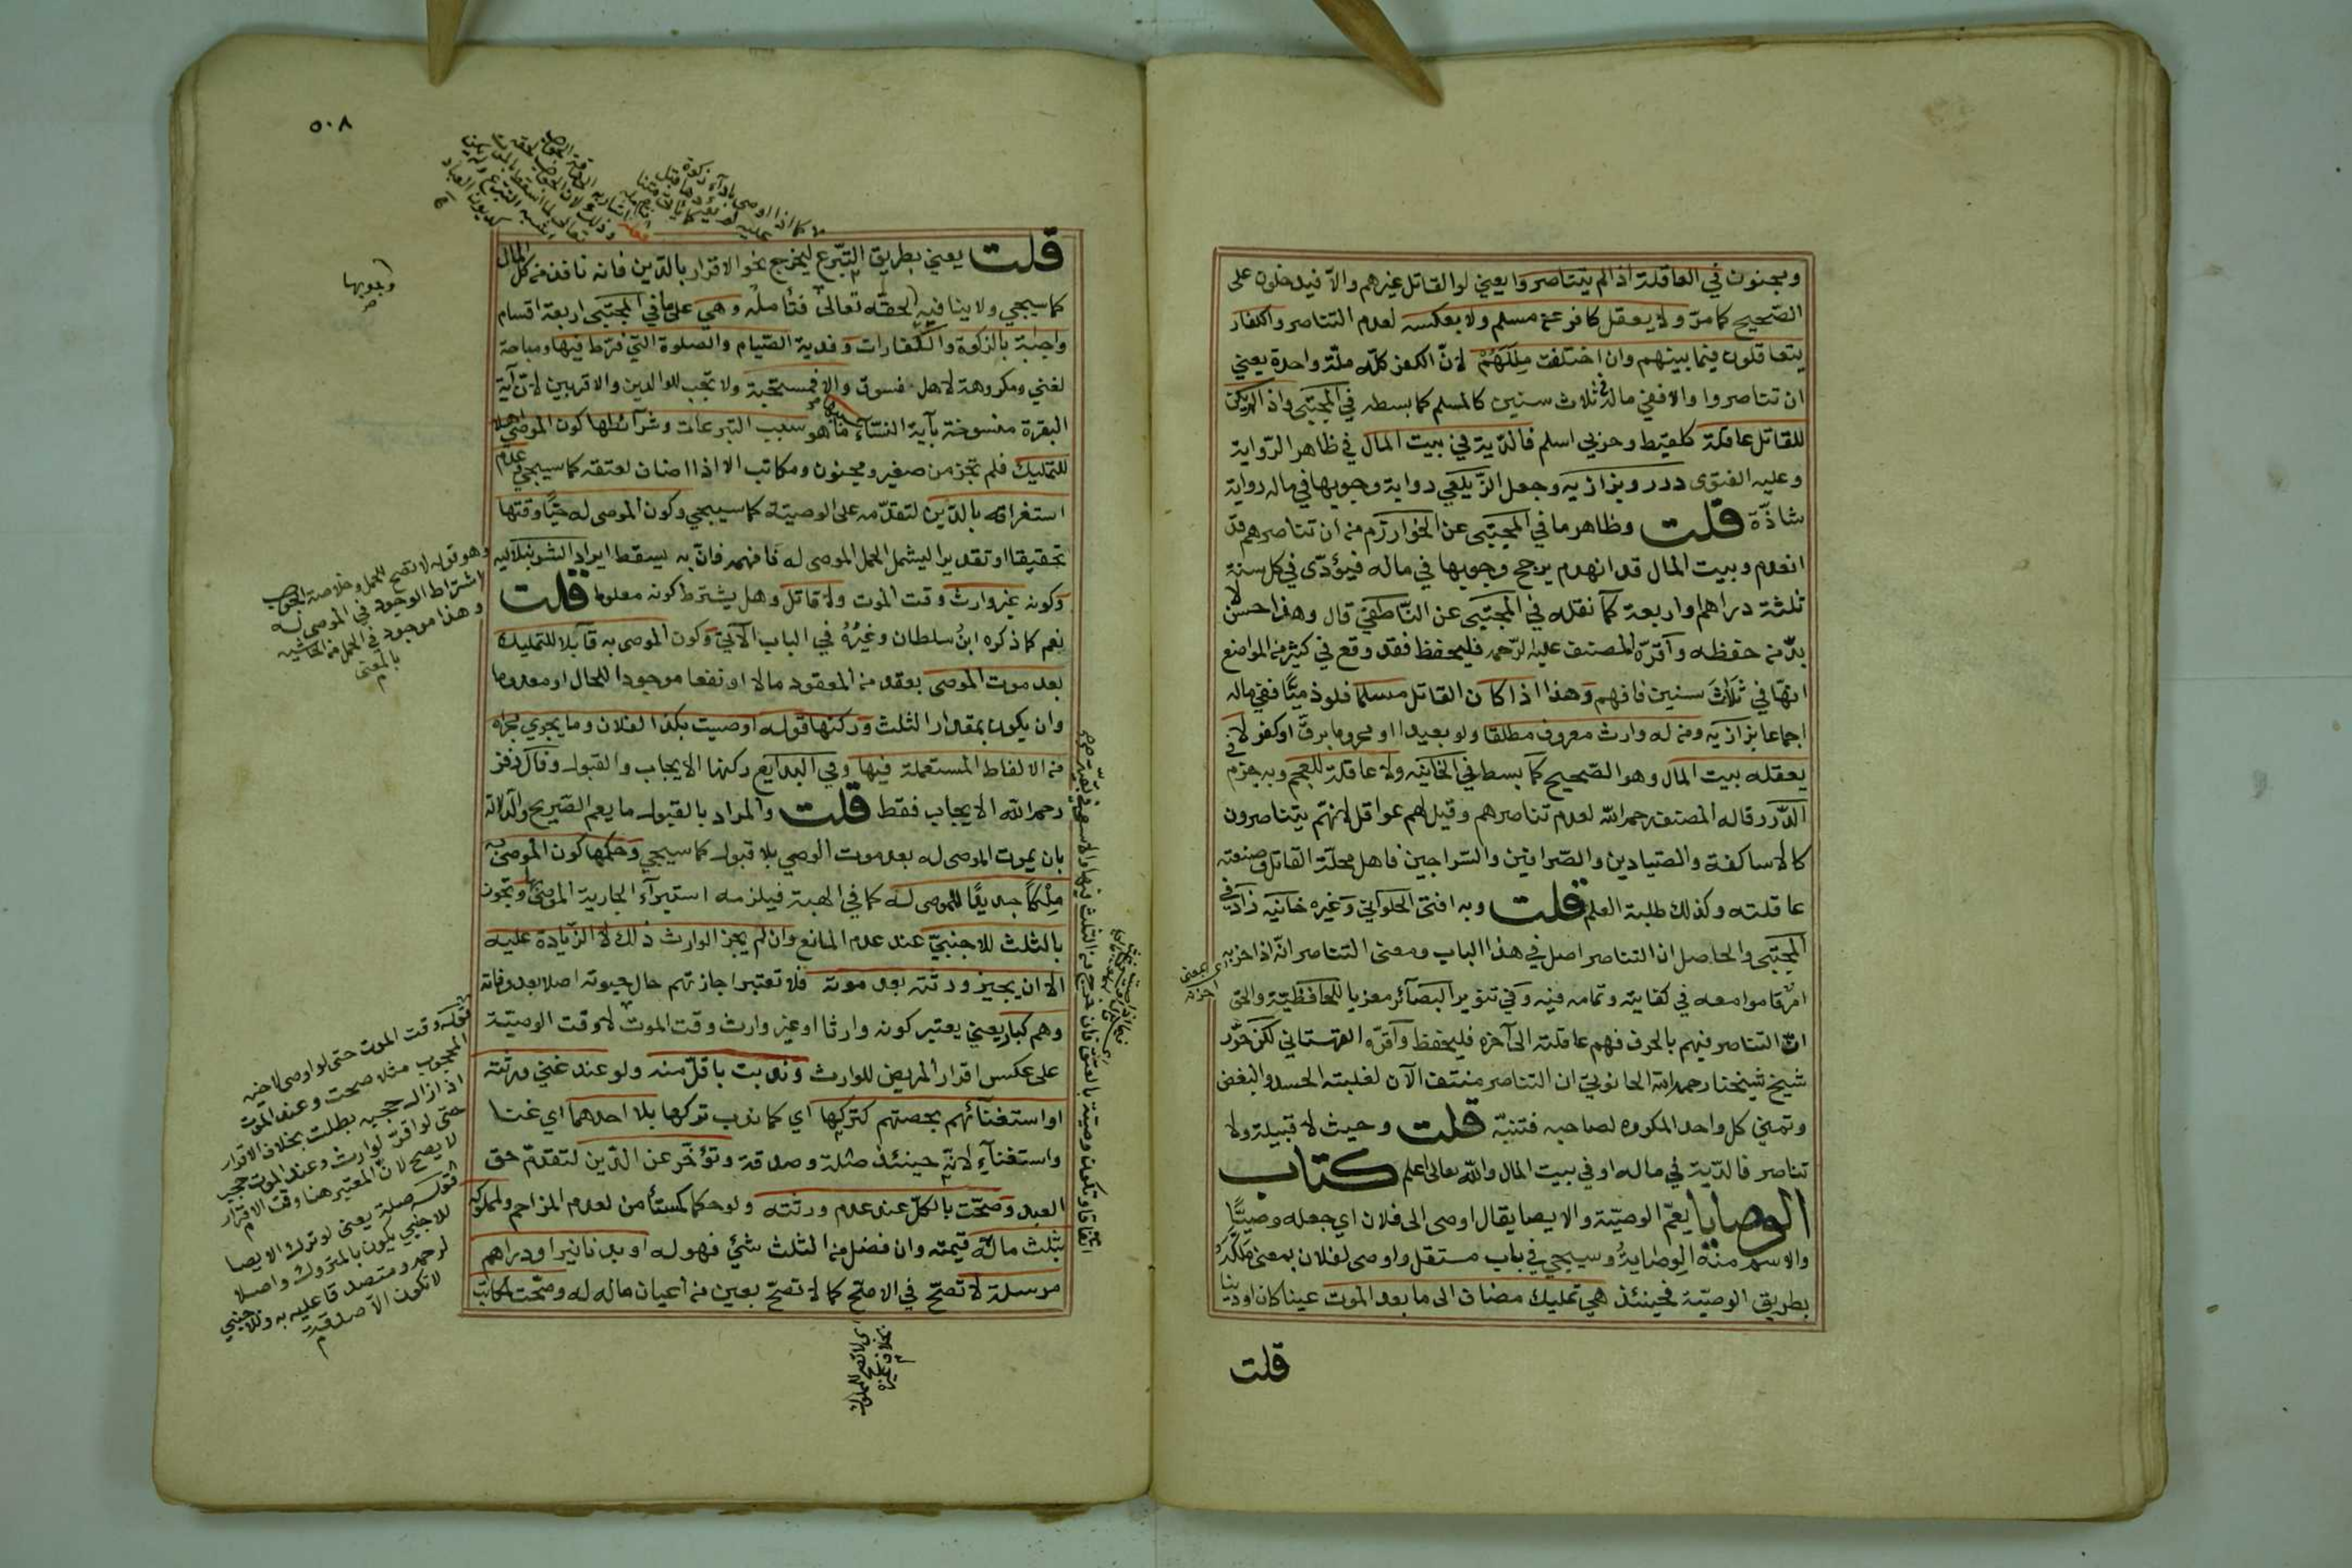 ومجنون في العاقلة اذا لم يتناصروا يعني لو القاتل غيرهم والا فيدخلون على
الصحيح كما مر ولا يعقل كافر عن مسلم ولا بعكسه لعدم التناصر والكفار
يتعاقلون فيما بينهم وان اختلفت مللهم لان الكفر كله ملة واحدة يعني
ان تناصروا والا ففي ماله في ثلاث سنين كالمسلم كما بسطه في المجتبى واذا لم يكن
للقاتل عاقلة كلقيط وحربي اسلم فالدية في بيت المال في ظاهر الرواية
وعليه الفتوى درر وبزازيه وجعل الزيلعي رواية وجوبها في ماله رواية
شاذة قلت وظاهر ما في المجتبى عن الخوارزم من ان تناصرهم قد
انعدم وبيت المال قد انهدم يرجح وجوبها في ماله فيؤدى في كل سنة
ثلثة دراهم او اربعة كما نقله في المجتبى عن الناطفي قال وهذا حسن لا
بد من حفظه واقره المصنف عليه الرحمه فليحفظ فقد وقع في كثير من المواضع
انها في ثلاث سنين فافهم وهذا اذا كان القاتل مسلما فلو ذميا ففي ماله
اجماعا بزازيه ومن له وارث معروف مطلقا ولو بعيدا او محروما برق او كفر لا
يعقله بيت المال وهو الصحيح كما بسط في الخانيه ولا عاقلة للعجم وبه جزم في
الدرر قاله المصنف رحمه الله لعدم تناصرهم وقيل لهم عواقل لانهم يتناصرون
كالاساكفة والصيادين والصرافين والسراجين فاهل محلة القاتل وصنعته
عاقلته وكذلك طلبة العلم قلت وبه افتى الحلواني وغيره خانيه زاد في
المجتبى والحاصل ان التناصر اصل في هذا الباب ومعنى التناصر انه اذا حزبه
امر قاموا معه في كفايته وتمامه فيه وفي تنوير البصائر معزيا للحافظية والحق
ان التناصر فيهم بالحرف فهم عاقلته الى آخره فليحفظ واقره القهستاني لكن حرر
شيخ شيخنا رحمه الله الحانوتي ان التناصر منتف الآن لغلبة الحسد والبغض
وتمني كل واحد المكروه لصاحبه فتنبه قلت وحيث لا قبيلة ولا
تناصر فالدية في ماله او في بيت المال والله تعالى اعلم كتاب
الوصايا يعم الوصية والايصا يقال اوصى الى فلان اي جعله وصيا
والاسم منه الوصاية وسيجي في باب مستقل واوصى لفلان بمعنى ملكه
بطريق الوصية فحينئذ هي تمليك مضاف الى ما بعد الموت عينا كان او دينا
قلت
٥٠٨
قلت يعني بطريق التبرع ليخرج نحو الاقرار بالدين فانه نافذ من كل المال
كما سيجي ولا ينافيه لحقه تعالى فتأمله وهي على ما في المجتبى اربعة اقسام
واجبة بالزكوة والكفارات وفدية الصيام والصلوة التي فرط فيها ومباحة
لغني ومكروهة لاهل فسوق والا فمستحبة ولا تجب للوالدين والاقربين لان آية
البقرة منسوخة بآية النساء سببها ما هو سبب التبرعات وشرائطها كون الموصي اهلا
للتمليك فلم تجز من صغير ومجنون ومكاتب الا اذا اضاف لعتقه كما سيجي وعدم
استغراقه بالدين لتقدمه على الوصية كما سيجي وكون الموصى له حيا وقتها
تحقيقا او تقديرا ليشمل الحمل الموصى له فافهمه فان به يسقط ايراد الشرنبلاليه
وكونه غير وارث وقت الموت ولا قاتل وهل يشترط كونه معلوما قلت
نعم كما ذكره ابن سلطان وغيره في الباب الآتي وكون الموصى به قابلا للتمليك
بعد موت الموصي بعقد من العقود مالا او نفعا موجودا للحال او معدوما
وان يكون بمقدار الثلث وركنها قوله اوصيت بكذا لفلان وما يجري مجراه
من الالفاظ المستعملة فيها وفي البدايع ركنها الايجاب والقبول وقال زفر
رحمه الله الايجاب فقط قلت والمراد بالقبول ما يعم الصريح والدلالة
بان يموت الموصى له بعد موت الوصي بلا قبول كما سيجي وحكمها كون الموصى به
ملكا جديدا للموصى له كما في الهبة فيلزمه استبراء الجارية الموصى بها وتجوز
بالثلث للاجنبي عند عدم المانع وان لم يجز الوارث ذلك لا الزيادة عليه
الا ان يجيز ورثته بعد موته فلا تعتبر اجازتهم حال حيوته اصلا بعد وفاته
وهم كبار يعني يعتبر كونه وارثا او غير وارث وقت الموت لا وقت الوصية
على عكس اقرار المريض للوارث وندبت باقل منه ولو عند غني ورثته
او استغنائهم بحصتهم كتركها اي كما ندب تركها بلا احدهما اي غنا
واستغناء لانه حينئذ صلة وصدقة وتؤخر عن الدين لتقدم حق
العبد وصحت بالكل عند عدم ورثته ولو حكما كمستأمن لعدم المزاحم ولمملوكه
بثلث ماله قيمته وان فضل من الثلث شئ فهو له او بدنانير او دراهم
مرسلة لا تصح في الاصح كما لا تصح بعين من اعيان ماله له وصحت لمكاتب
وجوبها
وهو قوله لا تصح للحمل وخلاصة الجواب
اشتراط الوجود في الموصى له
وهذا موجود في الحمل من الحاشيه
بالمعنى
قوله وقت الموت حتى لو اوصى لاخيه
المحجوب مثلا صحت وعند الموت
اذا زال حجبه بطلت بخلاف الاقرار
حتى لو اقر لوارث وعند الموت حجب
لا يصح لان المعتبر هنا وقت الاقرار
قوله صلة يعنى لو ترك الايصا
للاجنبي يكون بالمتروك واصلا
لرحمه ومتصدقا عليه به وللاجنبي
لا تكون الا صدقة